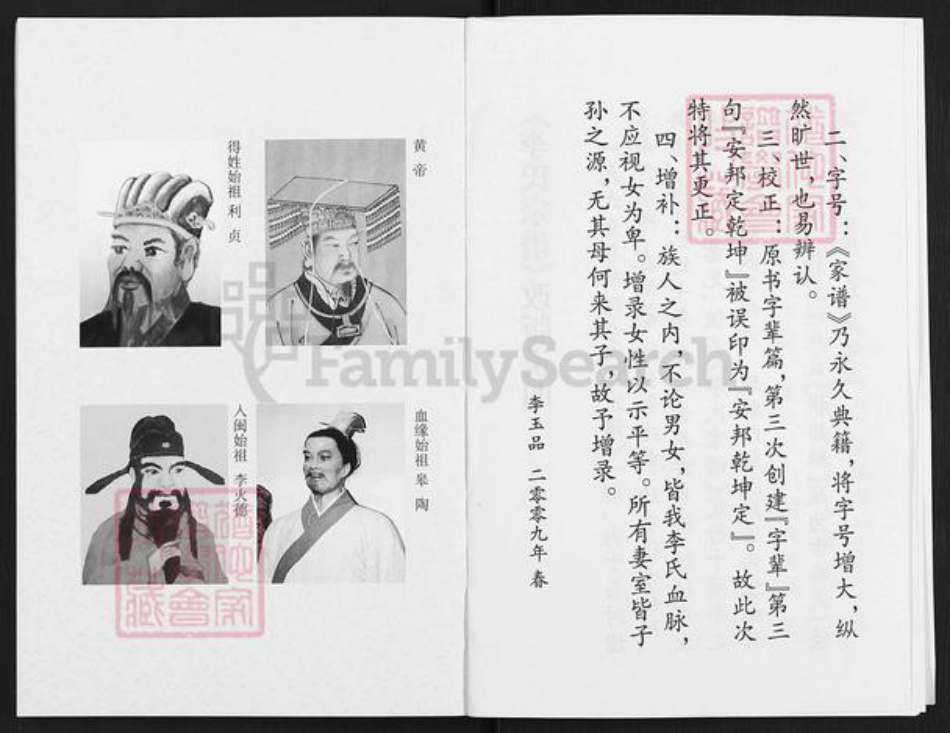 二、字号：《家谱》乃永久典籍，将字号增大，纵
然旷世，也易辨认。
三、校正：原书字辈篇，第三次创建『字辈』第三
句『安邦定乾坤』被误印为『安邦乾坤定』。故此次
特将其更正。
四、增补：族人之内，不论男女，皆我李氏血脉，
不应视女为卑。增录女性以示平等。所有妻室皆子
孙之源，无其母何来其子，故予增录。
李玉品 二零零九年 春
黄帝
得姓始祖 利贞
血缘始祖 皋陶
入闽始祖 李火德
FamilySearch